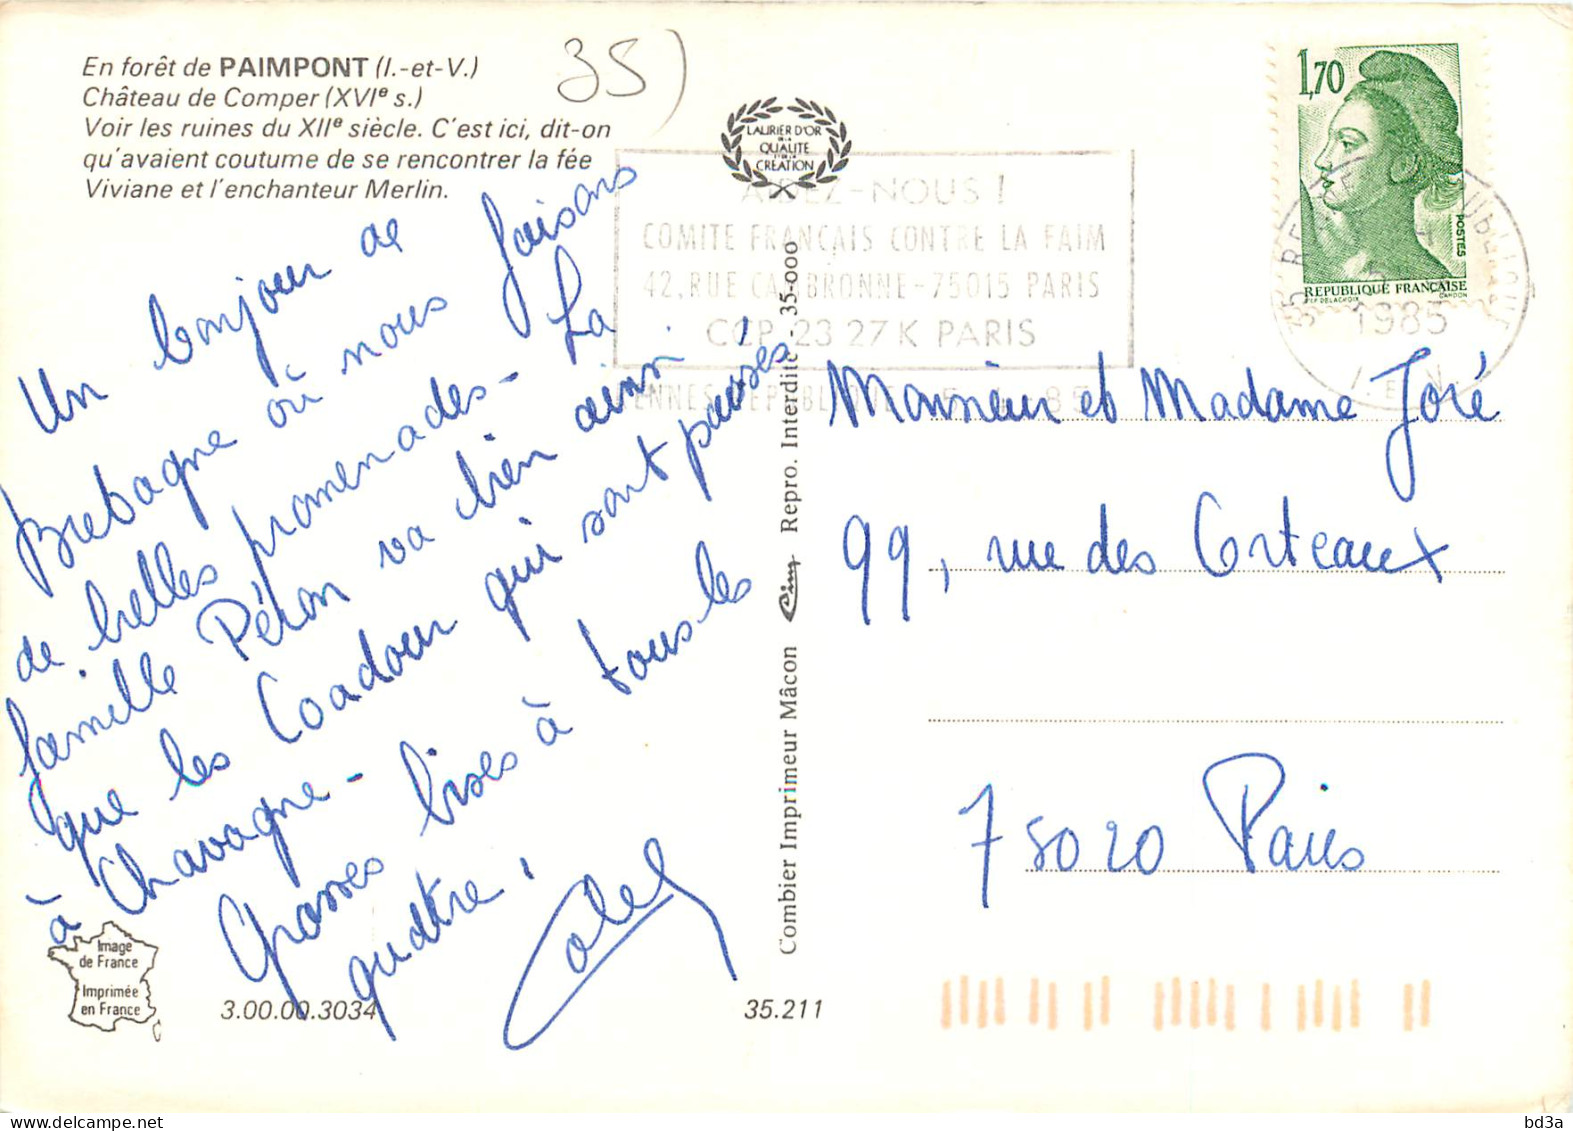 En forêt de PAIMPONT (I.-et-V.)
Château de Comper (XVIe s.)
Voir les ruines du XIIe siècle. C'est ici, dit-on
qu'avaient coutume de se rencontrer la fée
Viviane et l'enchanteur Merlin.
35)
LAURIER D'OR
DE LA
QUALITÉ
ET DE LA
CRÉATION
AIDEZ-NOUS !
COMITE FRANCAIS CONTRE LA FAIM
42, RUE CAMBRONNE-75015 PARIS
CCP 23 27 K PARIS
RENNES REPUBLIQUE 5-4-85
1,70
POSTES
REPUBLIQUE FRANÇAISE
D'AP DELACROIX GANDON
35 RENNES REPUBLIQUE
1985
Un bonjour de
Bretagne où nous faisons
de belles promenades - La
famille Péron va bien ainsi
que les Coadour qui sont passés
à Chavagne -
Grosses bises à tous les
quatre !
Monsieur et Madame Joré
99, rue des Orteaux
75020 Paris
Combier Imprimeur Mâcon Cim Repro. Interdite - 35-000
Image
de France
Imprimée
en France
C
3.00.00.3034
35.211
bd3a